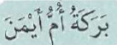 بَرَكَةُ أُمُّ أَيْمَنَ